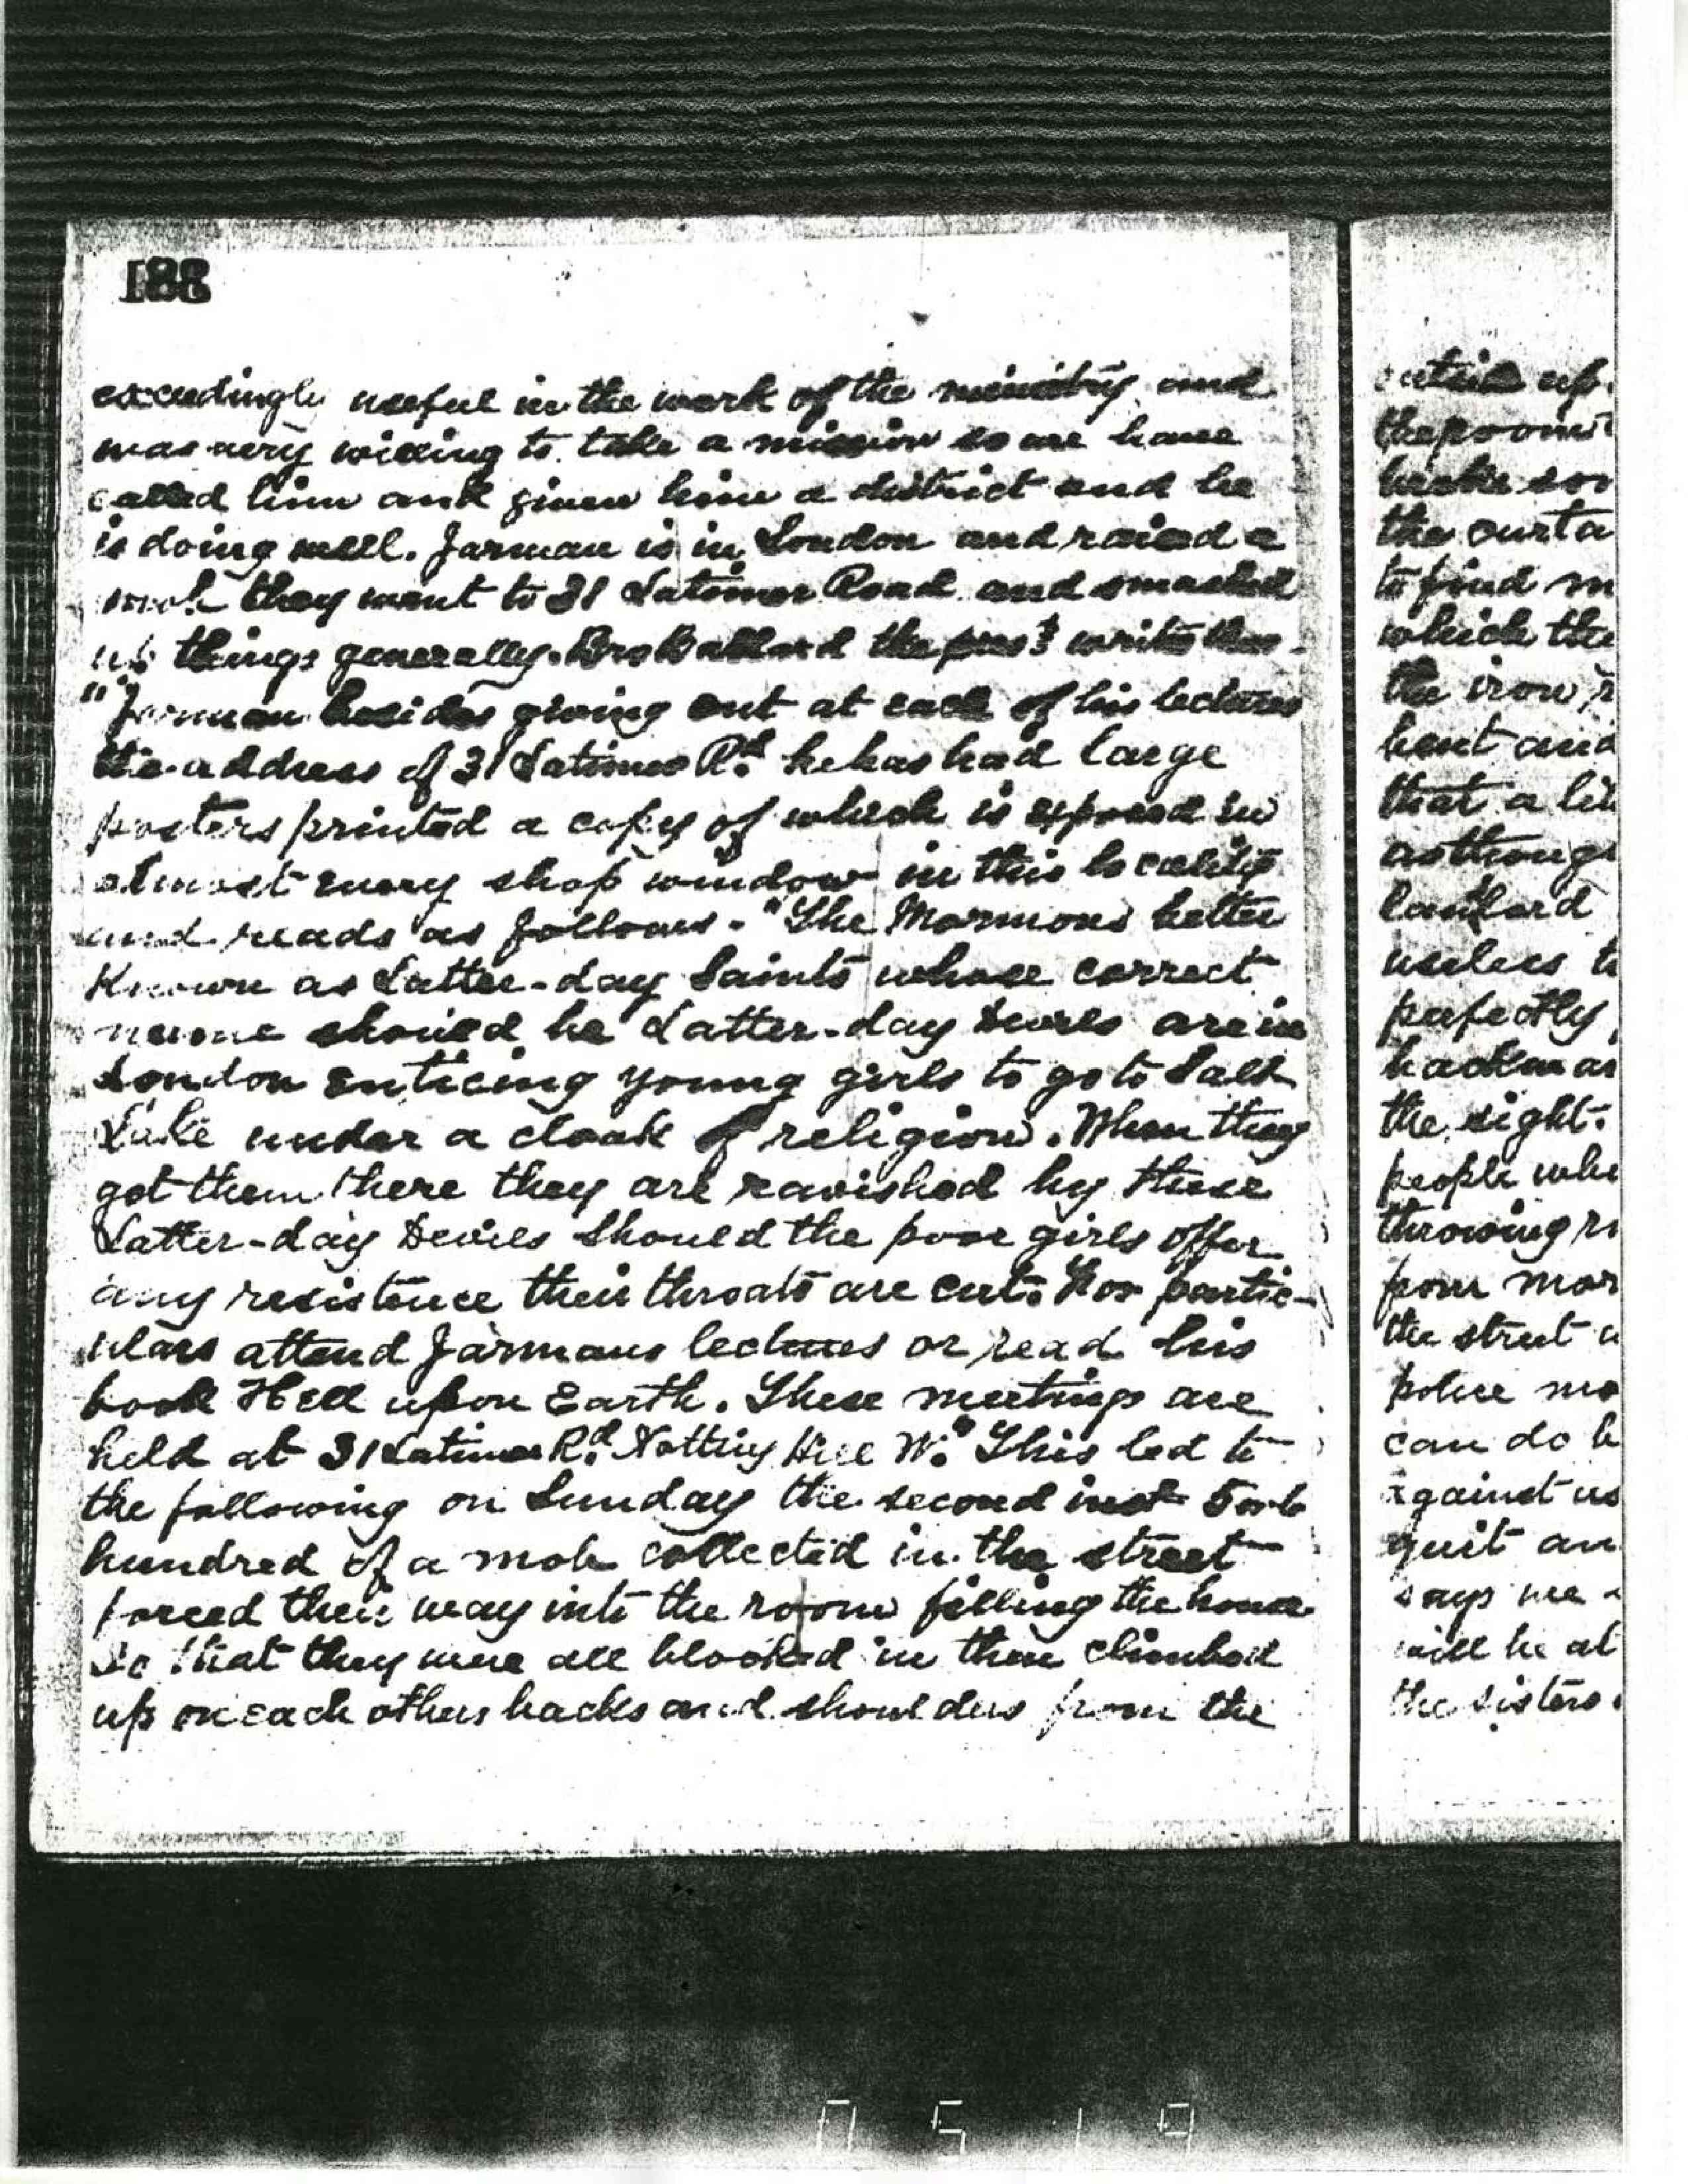 188
exceedingly useful in the work of the ministry and
was very willing to take a mission so we have
called him and given him a district and he
is doing well. Jarman is in London and raised a
mob they went to 31 Latimer Road and smashed
up things generally. Bro Ballard the pres^t writes thus -
"Jarman besides giving out at each of his lectures
the address of 31 Latimer R^d. he has had large
posters printed a copy of which is exposed in
almost every shop window in this locality
and reads as follows - "The Mormons better
Known as Latter-day Saints whose correct
name should be Latter-day Devils are in
London enticing young girls to go to Salt
Lake under a cloak of religion. When they
got them there they are ravished by these
Latter-day Devils Should the poor girls offer
any resistence their throats are cut. For partic-
ulars attend Jarmans lectures or read his
book Hell upon Earth. These meetings are
held at 31 Latimer R^d. Notting Hill W." This led to
the following on Sunday the second inst 5 or 6
hundred of a mob collected in the street
forced their way into the room filling the house
So that they were all blocked in then climbed
up on each others backs and shoulders from the
up
the room
the curta
to find m
which the
the iron
bent and
that a
as thoug
landlord
useless t
perfectly
the sight.
people who
throwing
from mor
the street
police
can do
against us
quit an
says we
will be
the sisters
0519